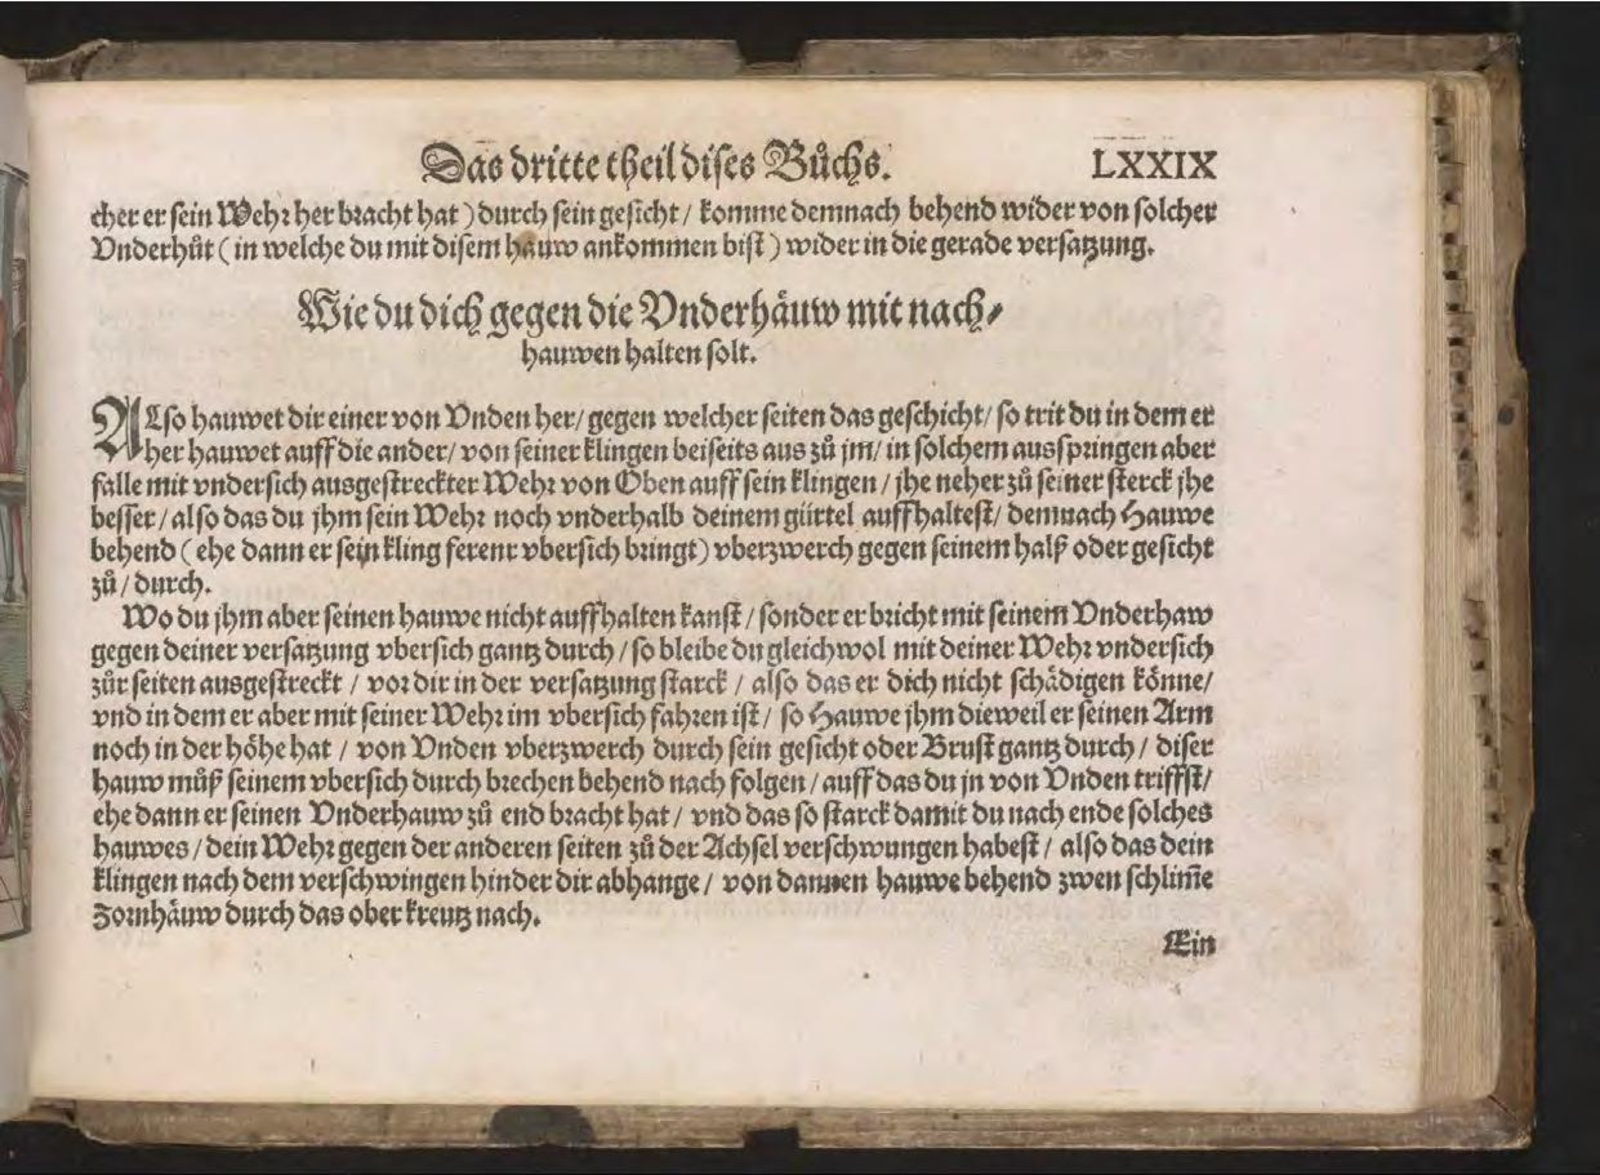 Das dritte theil dises Bůchs. LXXIX
cher er sein Wehr her bracht hat) durch sein gesicht / komme demnach behend wider von solcher
Vnderhůt (in welche du mit disem hauw ankommen bist) wider in die gerade versatzung.
Wie du dich gegen die Vnderhäuw mit nach-
hauwen halten solt.
ALso hauwet dir einer von Vnden her / gegen welcher seiten das geschicht / so trit du in dem er
her hauwet auff die ander / von seiner klingen beiseits aus zů jm / in solchem ausspringen aber
falle mit vndersich ausgestreckter Wehr von Oben auff sein klingen / jhe neher zů seiner sterck jhe
besser / also das du jhm sein Wehr noch vnderhalb deinem gürtel auffhaltest / demnach Hauwe
behend (ehe dann er sein kling ferenr vbersich bringt) vberzwerch gegen seinem halß oder gesicht
zů / durch.
Wo du jhm aber seinen hauwe nicht auffhalten kanst / sonder er bricht mit seinem Vnderhaw
gegen deiner versatzung vbersich gantz durch / so bleibe du gleichwol mit deiner Wehr vndersich
zůr seiten ausgestreckt / vor dir in der versatzung starck / also das er dich nicht schädigen könne /
vnd in dem er aber mit seiner Wehr im vbersich fahren ist / so Hauwe jhm dieweil er seinen Arm
noch in der höhe hat / von Vnden vberzwerch durch sein gesicht oder Brust gantz durch / diser
hauw můß seinem vbersich durch brechen behend nach folgen / auff das du jn von Vnden triffst /
ehe dann er seinen Vnderhauw zů end bracht hat / vnd das so starck damit du nach ende solches
hauwes / dein Wehr gegen der anderen seiten zů der Achsel verschwungen habest / also das dein
klingen nach dem verschwingen hinder dir abhange / von dannen hauwe behend zwen schlim̃e
Zornhäuw durch das ober kreutz nach.
Ein